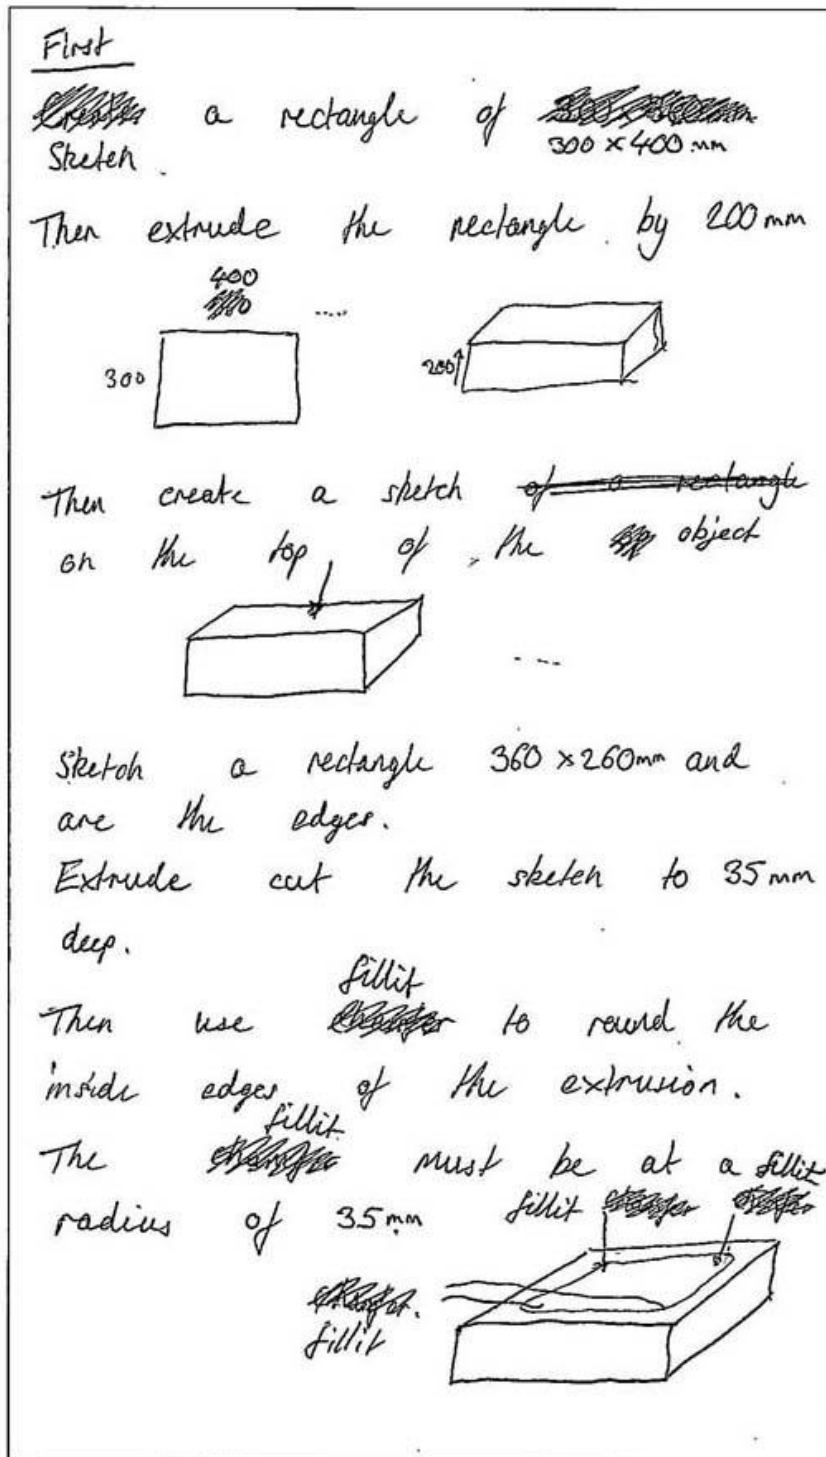 First
a rectangle of
Sketch. 300 x 400 mm
Then extrude the rectangle by 200mm
400
300
200
Then create a sketch of a rectangle
on the top of the object
Sketch a rectangle 360 x 260mm and
are the edges.
Extrude cut the sketch to 35mm
deep.
fillit
Then use to round the
inside edges of the extrusion.
fillit
The must be at a fillit
radius of 35mm fillit
fillit